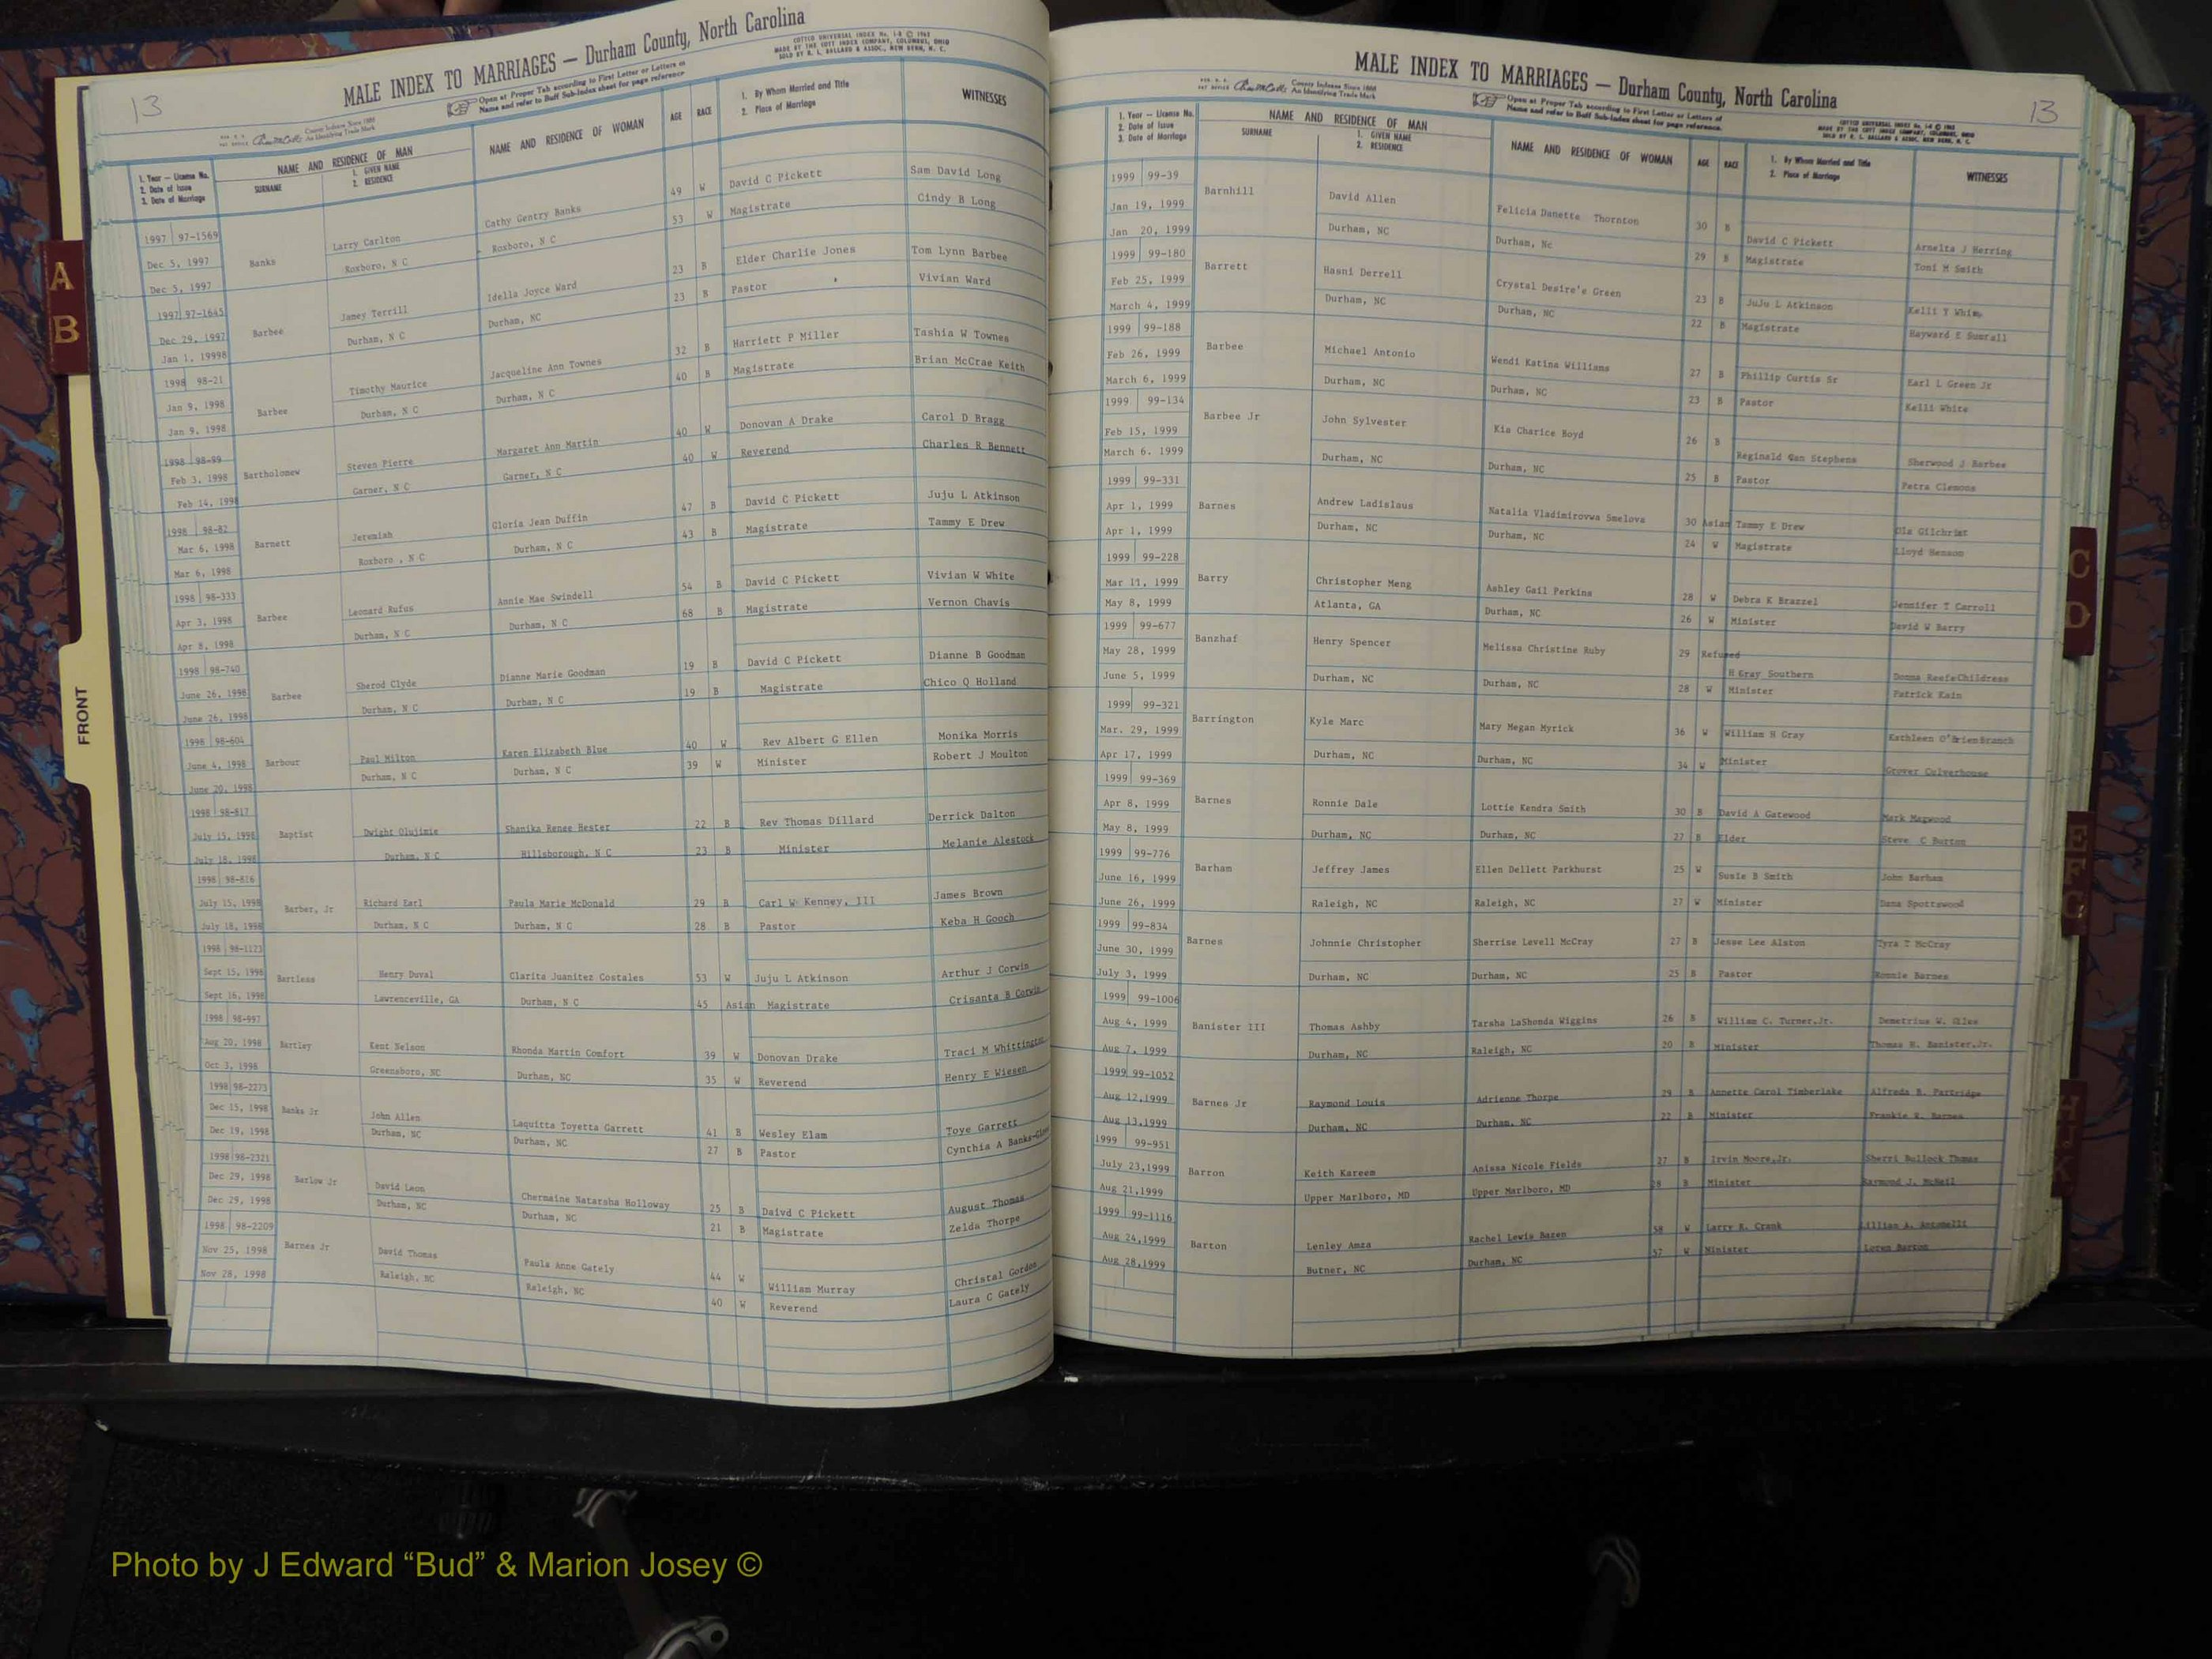 13
MALE INDEX TO MARRIAGES — Durham County, North Carolina
COTTCO UNIVERSAL INDEX No. 1-B © 1962
MADE BY THE COTT INDEX COMPANY, COLUMBUS, OHIO
SOLD BY R. L. BALLARD & ASSOC., NEW BERN, N. C.
County Indexes Since 1888
An Identifying Trade Mark
Open at Proper Tab according to First Letter or Letters of
Name and refer to Buff Sub-Index sheet for page reference
1. Year — License No.
2. Date of Issue
3. Date of Marriage
NAME AND RESIDENCE OF MAN
SURNAME
1. GIVEN NAME
2. RESIDENCE
NAME AND RESIDENCE OF WOMAN
AGE
RACE
1. By Whom Married and Title
2. Place of Marriage
WITNESSES
1997 97-1569 Banks Larry Carlton Cathy Gentry Banks 49 W David C Pickett Sam David Long
Dec 5, 1997 Roxboro, N C Roxboro, N C 53 W Magistrate Cindy B Long
Dec 5, 1997
1997 97-1645 Barbee Jamey Terrill Idella Joyce Ward 23 B Elder Charlie Jones Tom Lynn Barbee
Dec 29, 1997 Durham, N C Durham, NC 23 B Pastor Vivian Ward
Jan 1, 19998
1998 98-21 Barbee Timothy Maurice Jacqueline Ann Townes 32 B Harriett P Miller Tashia W Townes
Jan 9, 1998 Durham, N C Durham, N C 40 B Magistrate Brian McCrae Keith
Jan 9, 1998
1998 98-99 Bartholomew Steven Pierre Margaret Ann Martin 40 W Donovan A Drake Carol D Bragg
Feb 3, 1998 Garner, N C Garner, N C 40 W Reverend Charles R Bennett
Feb 14, 1998
1998 98-82 Barnett Jeremiah Gloria Jean Duffin 47 B David C Pickett Juju L Atkinson
Mar 6, 1998 Roxboro , N C Durham, N C 43 B Magistrate Tammy E Drew
Mar 6, 1998
1998 98-333 Barbee Leonard Rufus Annie Mae Swindell 54 B David C Pickett Vivian W White
Apr 3, 1998 Durham, N C Durham, N C 68 B Magistrate Vernon Chavis
Apr 8, 1998
1998 98-740 Barbee Sherod Clyde Dianne Marie Goodman 19 B David C Pickett Dianne B Goodman
June 26, 1998 Durham, N C Durham, N C 19 B Magistrate Chico Q Holland
June 26, 1998
1998 98-604 Barbour Paul Milton Karen Elizabeth Blue 40 W Rev Albert G Ellen Monika Morris
June 4, 1998 Durham, N C Durham, N C 39 W Minister Robert J Moulton
June 20, 1998
1998 98-817 Baptist Dwight Olujimie Shanika Renee Hester 22 B Rev Thomas Dillard Derrick Dalton
July 15, 1998 Durham, N C Hillsborough, N C 23 B Minister Melanie Alestock
July 18, 1998
1998 98-816 Barber, Jr Richard Earl Paula Marie McDonald 29 B Carl W Kenney, III James Brown
July 15, 1998 Durham, N C Durham, N C 28 B Pastor Keba H Gooch
July 18, 1998
1998 98-1123 Bartless Henry Duval Clarita Juanitez Costales 53 W Juju L Atkinson Arthur J Corwin
Sept 15, 1998 Lawrenceville, GA Durham, N C 45 Asian Magistrate Crisanta B Corwin
Sept 16, 1998
1998 98-997 Bartley Kent Nelson Rhonda Martin Comfort 39 W Donovan Drake Traci M Whittington
Aug 20, 1998 Greensboro, NC Durham, NC 35 W Reverend Henry E Wiesen
Oct 3, 1998
1998 98-2273 Banks Jr John Allen Laquitta Toyetta Garrett 41 B Wesley Elam Toye Garrett
Dec 15, 1998 Durham, NC Durham, NC 27 B Pastor Cynthia A
Dec 19, 1998
1998 98-2321 Barlow Jr David Leon Chermaine Natarsha Holloway 25 B Daivd C Pickett August Thomas
Dec 29, 1998 Durham, NC Durham, NC 21 B Magistrate Zelda Thorpe
Dec 29, 1998
1998 98-2209 Barnes Jr David Thomas Paula Anne Gately 44 W William Murray Christal Gordon
Nov 25, 1998 Raleigh, NC Raleigh, NC 40 W Reverend Laura C Gately
Nov 28, 1998
MALE INDEX TO MARRIAGES — Durham County, North Carolina
13
COTTCO UNIVERSAL INDEX No. 1-B © 1962
MADE BY THE COTT INDEX COMPANY, COLUMBUS, OHIO
SOLD BY R. L. BALLARD & ASSOC., NEW BERN, N. C.
County Indexes Since 1888
An Identifying Trade Mark
Open at Proper Tab according to First Letter or Letters of
Name and refer to Buff Sub-Index sheet for page reference.
1. Year — License No.
2. Date of Issue
3. Date of Marriage
NAME AND RESIDENCE OF MAN
SURNAME
1. GIVEN NAME
2. RESIDENCE
NAME AND RESIDENCE OF WOMAN
AGE
RACE
1. By Whom Married and Title
2. Place of Marriage
WITNESSES
1999 99-39 Barnhill David Allen Felicia Danette Thornton 30 B David C Pickett Arnelta J Herring
Jan 19, 1999 Durham, NC Durham, Nc 29 B Magistrate Toni M Smith
Jan 20, 1999
1999 99-180 Barrett Hasni Derrell Crystal Desire's Green 23 B JuJu L Atkinson Kelli Y
Feb 25, 1999 Durham, NC Durham, NC 22 B Magistrate Hayward E Sumrall
March 4, 1999
1999 99-188 Barbee Michael Antonio Wendi Katina Williams 27 B Phillip Curtis Sr Earl L Green Jr
Feb 26, 1999 Durham, NC Durham, NC 23 B Pastor Kelli White
March 6, 1999
1999 99-134 Barbee Jr John Sylvester Kia Charice Boyd 26 B Reginald Van Stephens Sherwood J Barbee
Feb 15, 1999 Durham, NC Durham, NC 25 B Pastor Petra Clemons
March 6. 1999
1999 99-331 Barnes Andrew Ladislaus Natalia Vladimirovwa Smelova 30 Asian Tammy E Drew Ola Gilchrist
Apr 1, 1999 Durham, NC Durham, NC 24 W Magistrate Lloyd Benson
Apr 1, 1999
1999 99-228 Barry Christopher Meng Ashley Gail Perkins 28 W Debra K Brazzel Jennifer T Carroll
Mar 11, 1999 Atlanta, GA Durham, NC 26 W Minister David W Barry
May 8, 1999
1999 99-677 Banzhaf Henry Spencer Melissa Christine Ruby 29 Refused H Gray Southern Donna ReefeChildress
May 28, 1999 Durham, NC Durham, NC 28 W Minister Patrick Kain
June 5, 1999
1999 99-321 Barrington Kyle Marc Mary Megan Myrick 36 W William H Gray Kathleen O'BrienBranch
Mar. 29, 1999 Durham, NC Durham, NC 34 W Minister Grover Culverhouse
Apr 17, 1999
1999 99-369 Barnes Ronnie Dale Lottie Kendra Smith 30 B David A Gatewood Mark Magwood
Apr 8, 1999 Durham, NC Durham, NC 27 B Elder Steve C Burton
May 8, 1999
1999 99-776 Barham Jeffrey James Ellen Dellett Parkhurst 25 W Susie B Smith John Barham
June 16, 1999 Raleigh, NC Raleigh, NC 27 W Minister Dana Spottswood
June 26, 1999
1999 99-834 Barnes Johnnie Christopher Sherrise Levell McCray 27 B Jesse Lee Alston Tyra T McCray
June 30, 1999 Durham, NC Durham, NC 25 B Pastor Ronnie Barnes
July 3, 1999
1999 99-1006 Banister III Thomas Ashby Tarsha LaShonda Wiggins 26 B William C. Turner,Jr. Demetrius W.
Aug 4, 1999 Durham, NC Raleigh, NC 20 B Minister Thomas H. Banister,Jr.
Aug 7, 1999
1999 99-1052 Barnes Jr Raymond Louis Adrienne Thorpe 29 B Annette Carol Timberlake Alfreda B. Partridge
Aug 12,1999 Durham, NC Durham, NC 22 B Minister Frankie R. Barnes
Aug 13,1999
1999 99-951 Barron Keith Kareem Anissa Nicole Fields 27 B Irvin Moore,Jr. Sherri Bullock Thomas
July 23,1999 Upper Marlboro, MD Upper Marlboro, MD 28 B Minister Raymond J. McNeil
Aug 21,1999
1999 99-1116 Barton Lenley Amza Rachel Lewis Bazen 58 W Larry E. Crank Lillian A. Antonelli
Aug 24,1999 Butner, NC Durham, NC 57 W Minister Loren Barton
Aug 28,1999
A
B
FRONT
C
D
E
F
G
H
K
Photo by J Edward “Bud” & Marion Josey ©